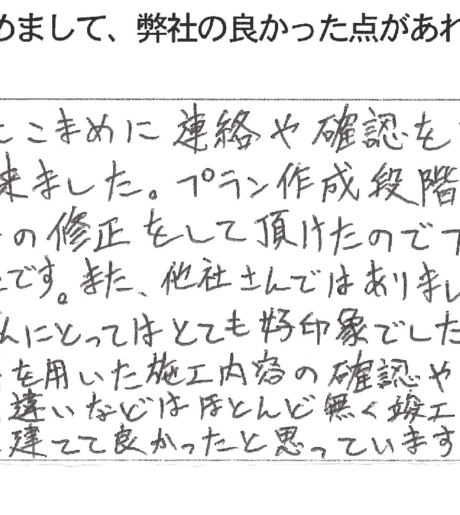 めまして、弊社の良かった点があれ
こまめに連絡や確認を
来ました。プラン作成段階
の修正をして頂けたので
です。また、他社さんではありまし
んにとってはとても好印象でした
を用いた施工内容の確認や
違いなどはほとんど無く竣工
建てて良かったと思っています